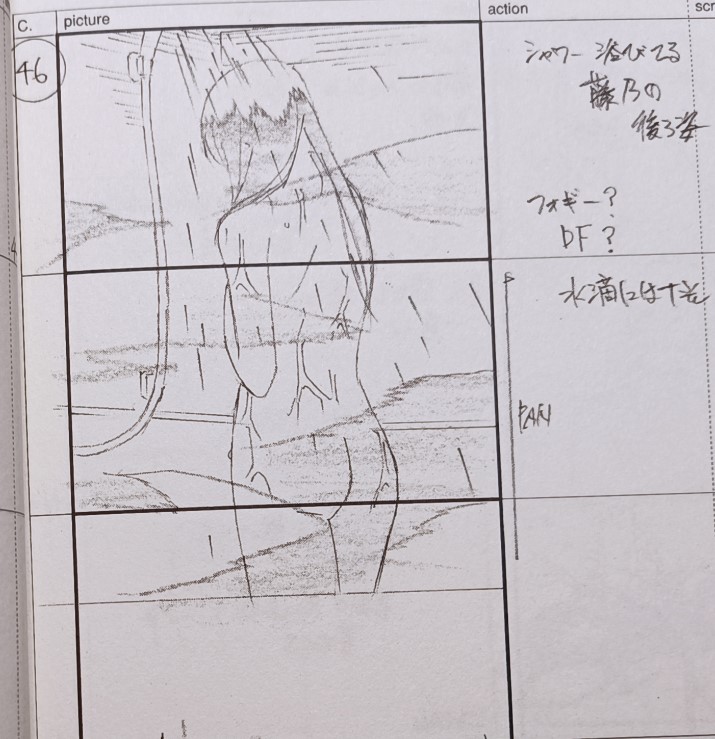 C.
picture
action
scr
46
シャワー浴びてる
藤乃の
後ろ姿
フォギー？
DF？
水滴には十光
PAN